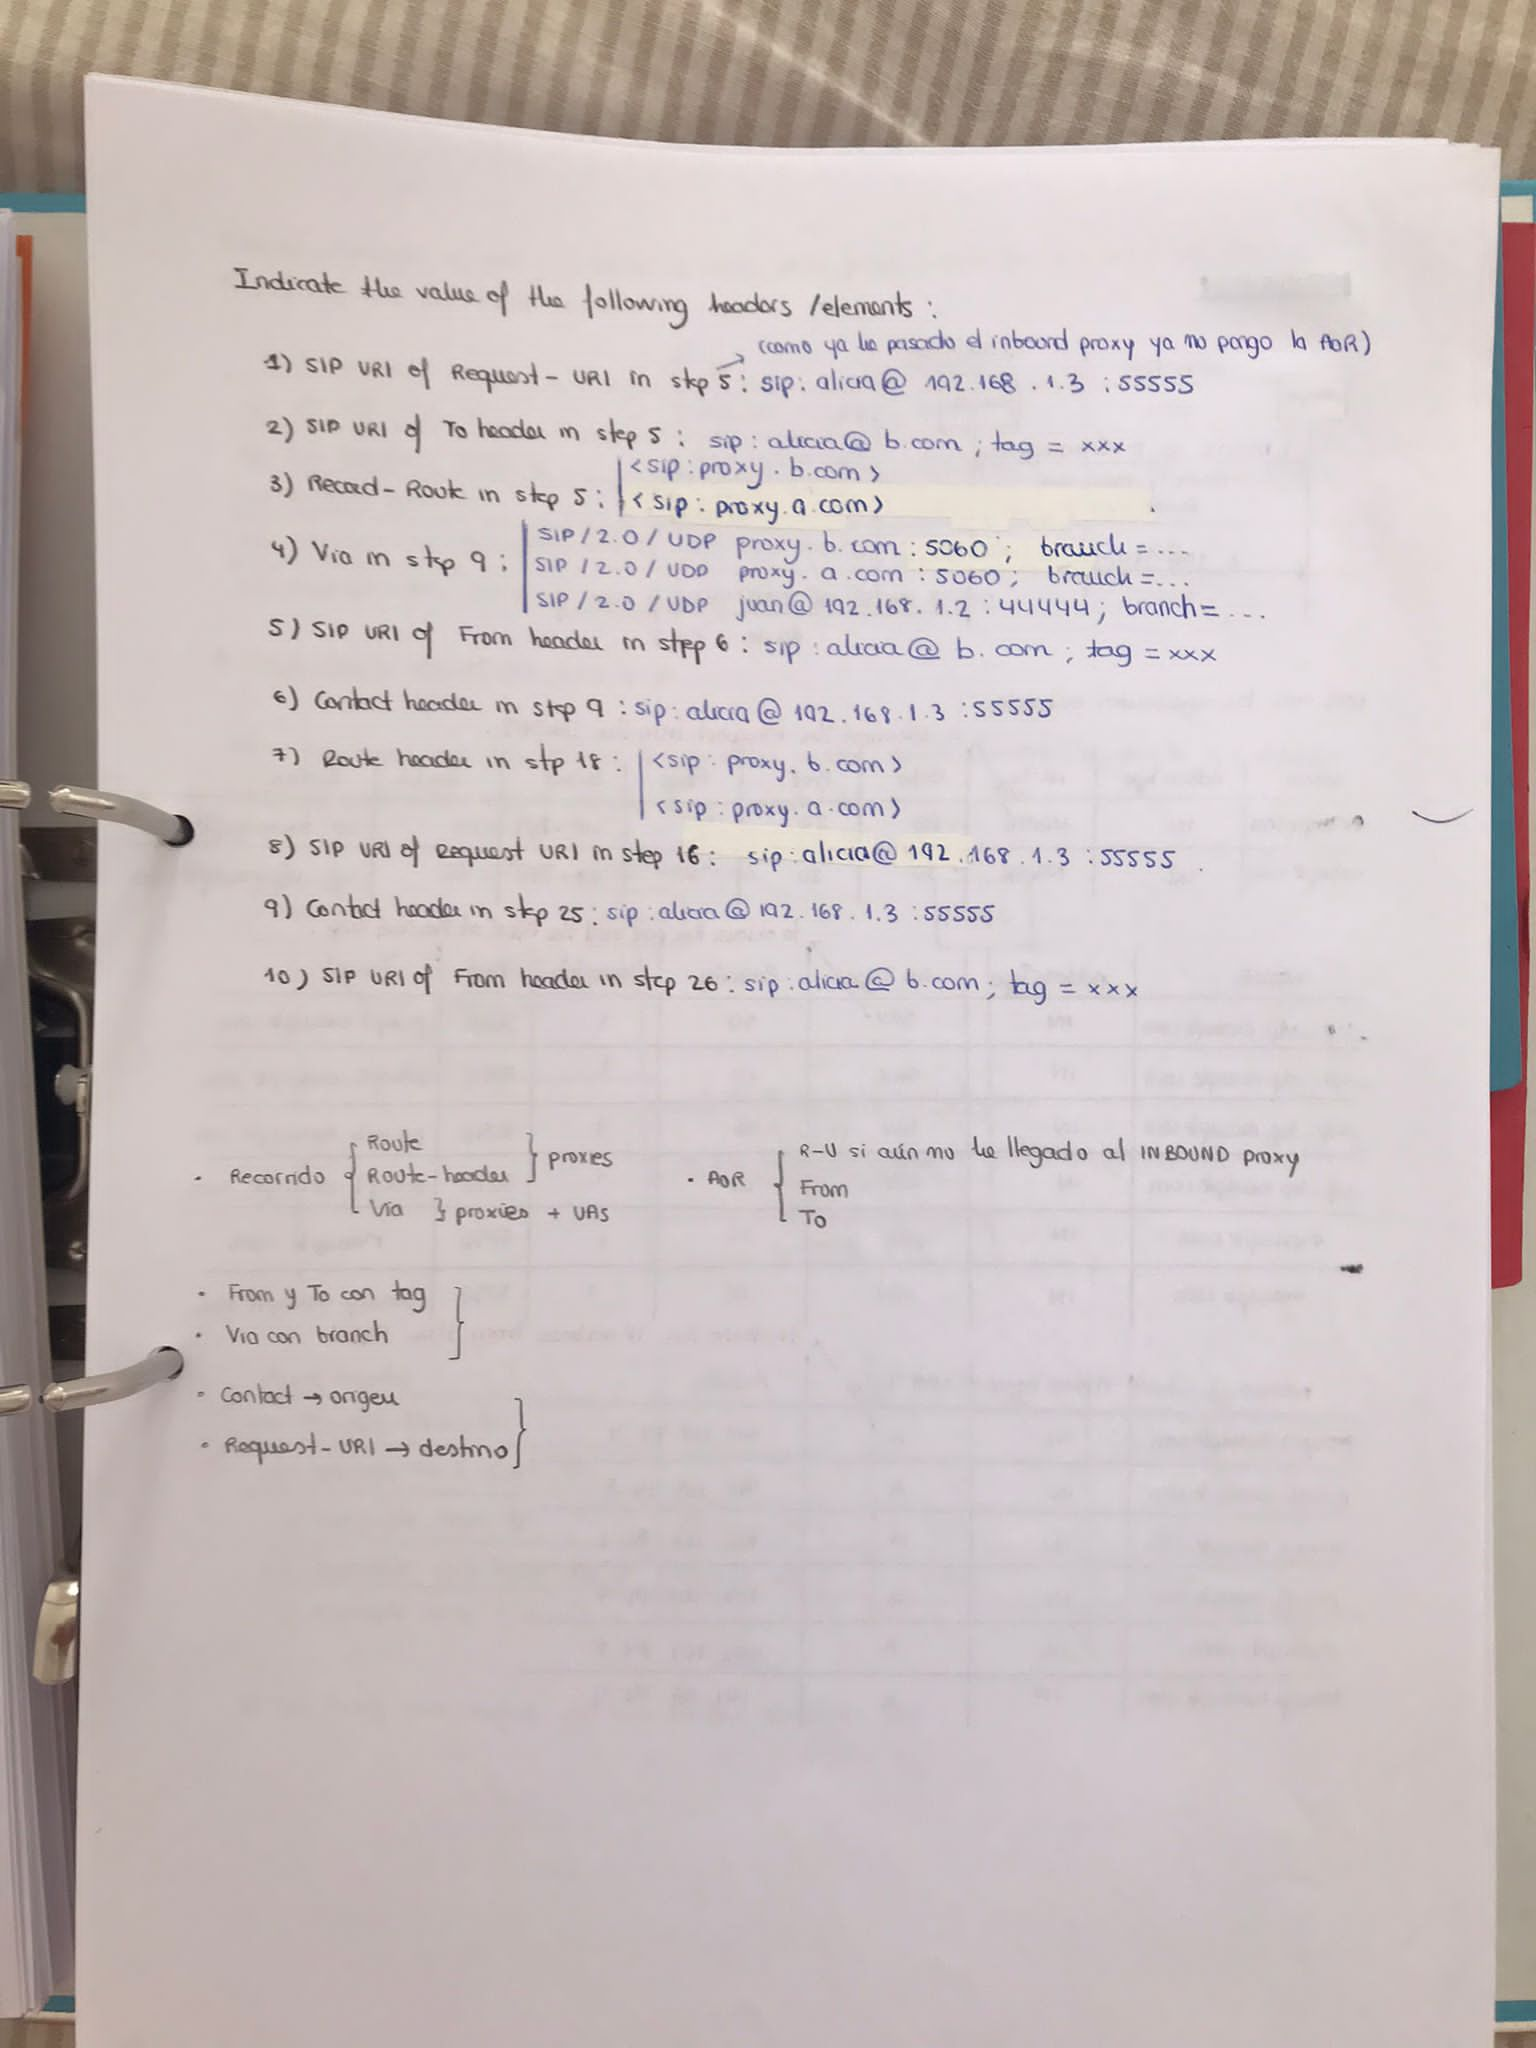 Indicate the value of the following headers /elements :
(como ya he pasado el inbound proxy ya no pongo la AOR)
1) SIP URI of Request-URI in step 5 : sip: alicia@ 192.168.1.3 :55555
2) SIP URI of To header in step 5 : sip : alicia@ b.com ; tag = xxx
3) Record-Route in step 5 : <sip:proxy.b.com>
<sip: proxy.a.com>
4) Via in step 9 : SIP/2.0/UDP proxy.b.com:5060 ; branch=...
SIP/2.0/UDP proxy.a.com :5060; branch=...
SIP/2.0/UDP juan@ 192.168.1.2:44444; branch=...
5) SIP URI of From header in step 6 : sip : alicia@ b.com; tag = xxx
6) Contact header in step 9 : sip: alicia@ 192.168.1.3 :55555
7) Route header in stp 18 : <sip: proxy.b.com>
<sip:proxy.a.com>
8) SIP URI of Request URI in step 16: sip:alicia@ 192.168.1.3 :55555
9) Contact header in step 25: sip:alicia@ 192.168.1.3 :55555
10) SIP URI of From header in step 26: sip:alicia@ b.com; tag = xxx
· Recorrido { Route
Route-header } proxies
Via } proxies + UAs
· AOR { R-U si aún no he llegado al INBOUND proxy
From
To
· From y To con tag
· Via con branch
· Contact → origen
· Request-URI → destino